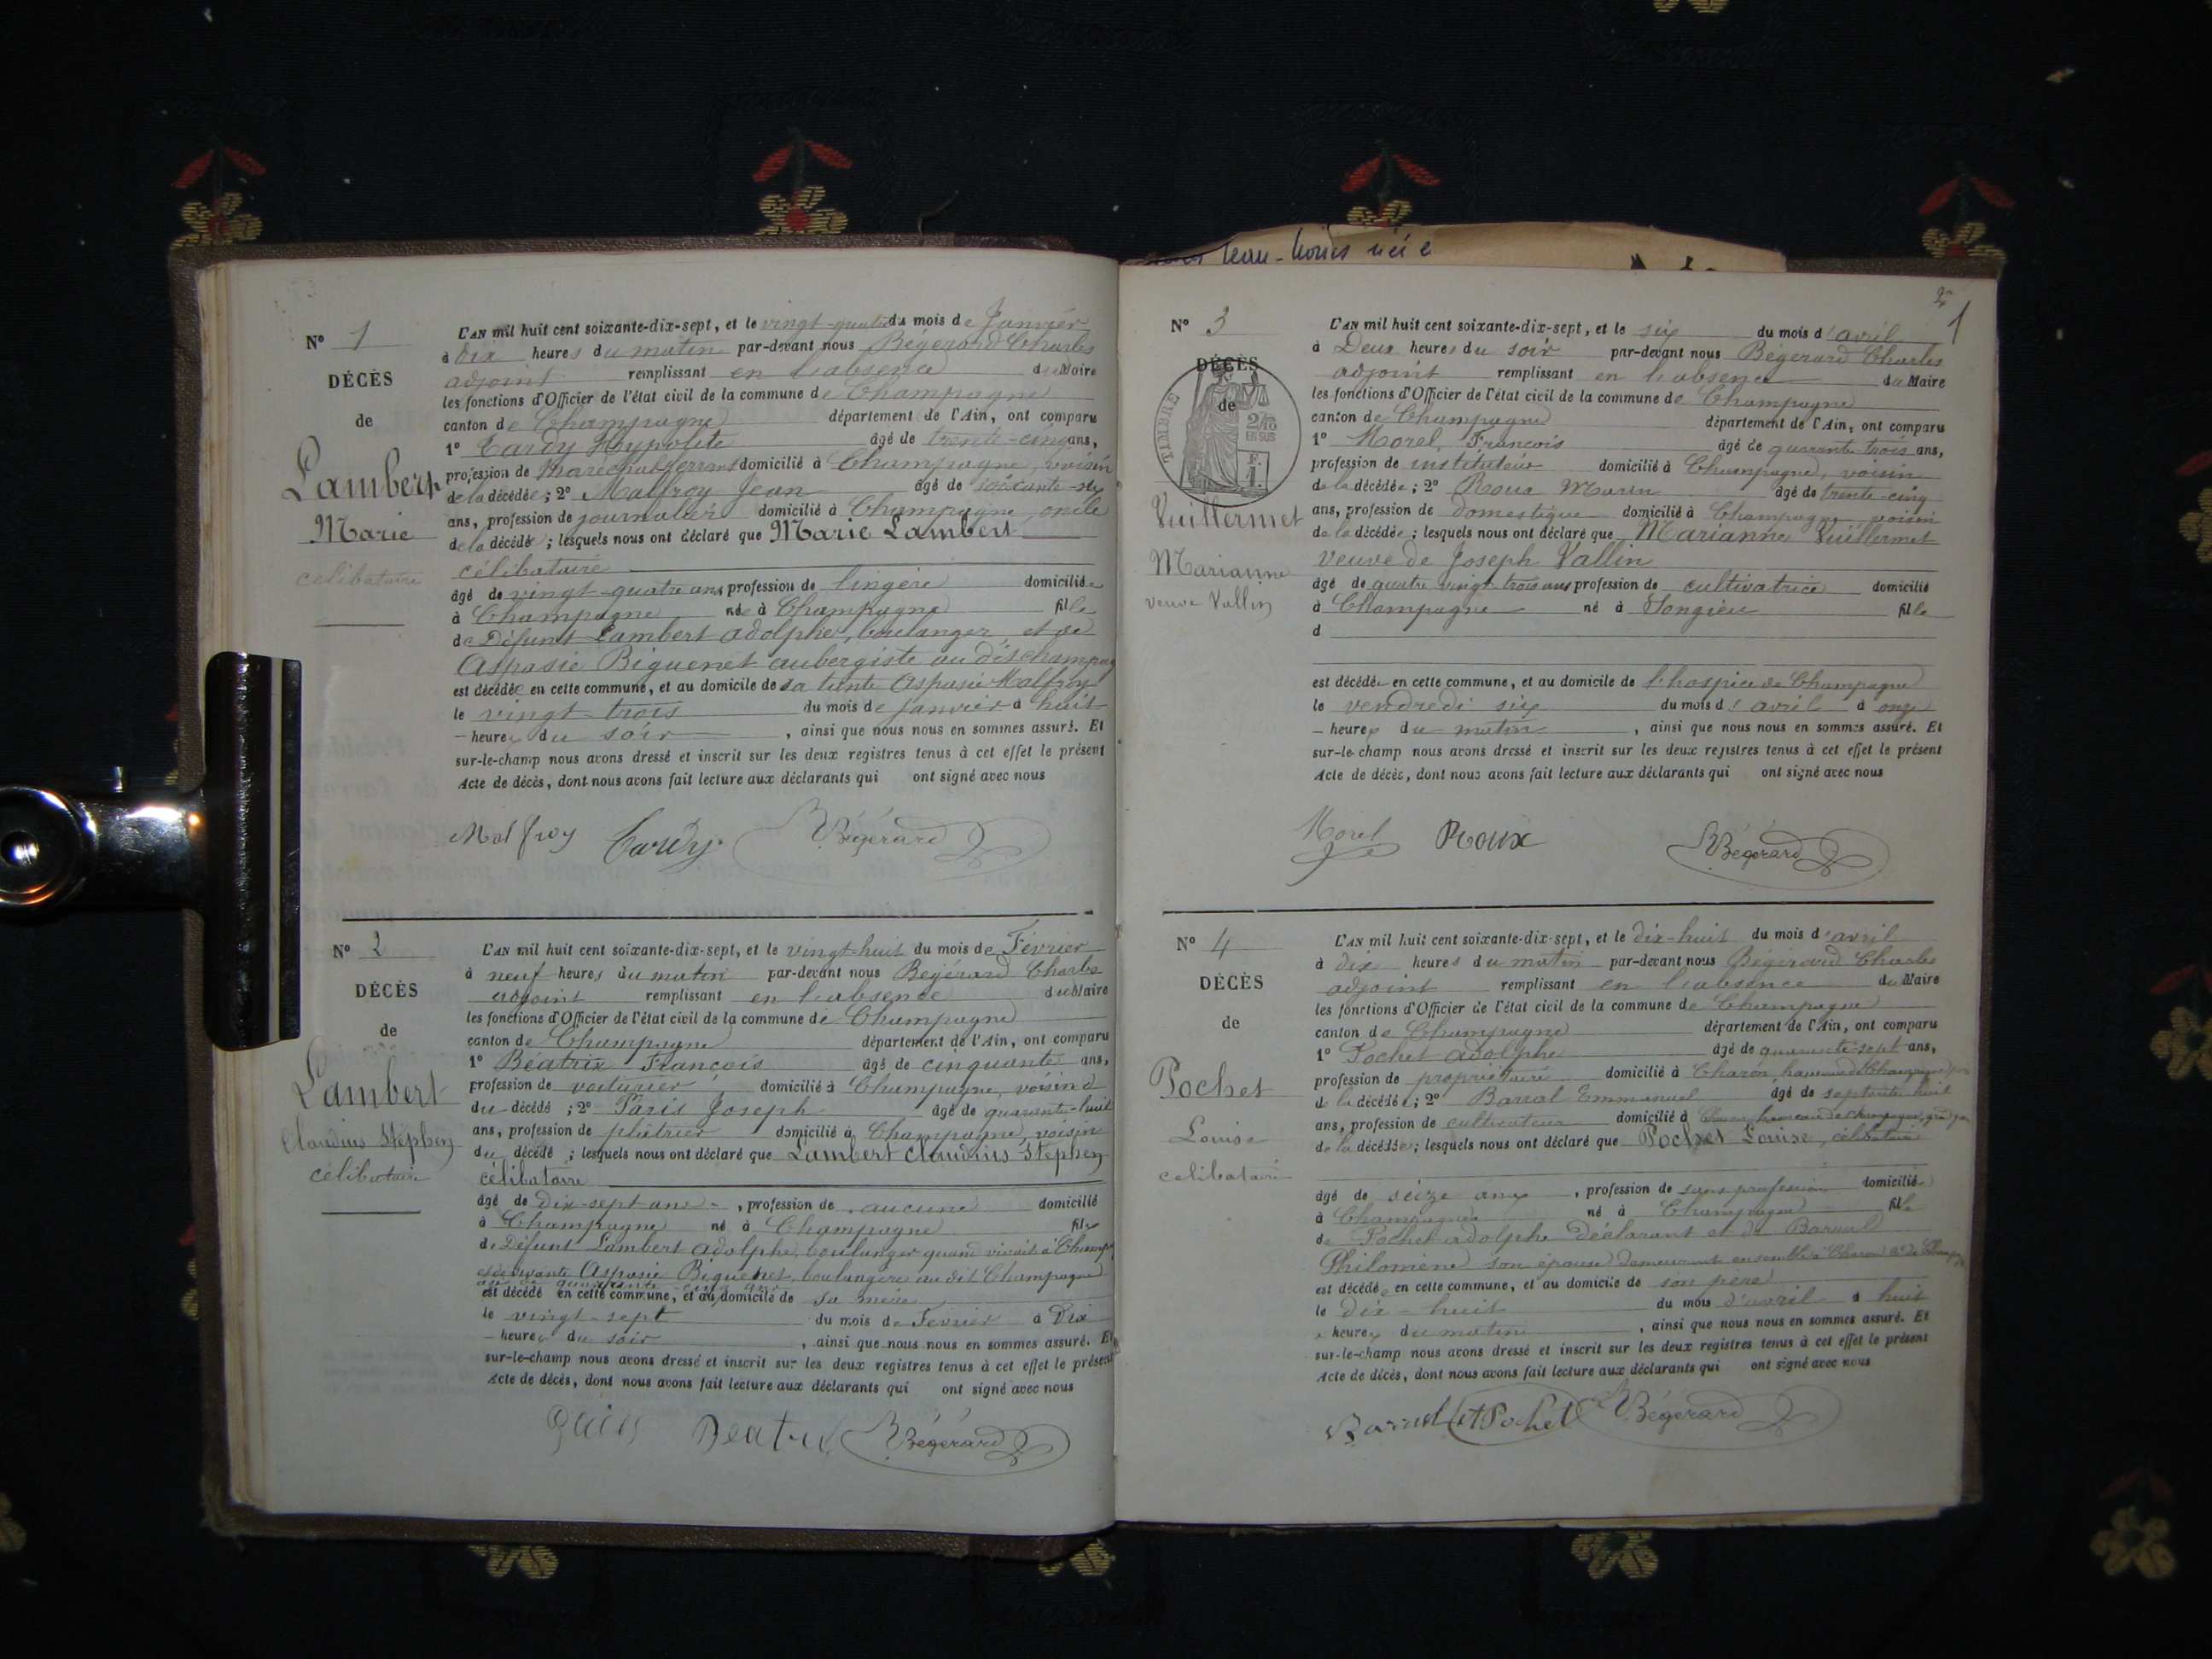 N° 1
DÉCÈS
de
Lambert
Marie
célibataire
L'AN mil huit cent soixante-dix-sept, et le vingt-quatre du mois de Janvier
à dix heures du matin par-devant nous Bégerard Charles
adjoint remplissant en l'absence du Maire
les fonctions d'Officier de l'état civil de la commune de Champagne
canton de Champagne département de l'Ain, ont comparu
1° Tardy Hypolite âgé de trente-cinq ans,
profession de Maréchal ferrant domicilié à Champagne, voisin
de la décédée ; 2° Malfroy Jean âgé de soixante-six
ans, profession de journalier domicilié à Champagne, oncle
de la décédée ; lesquels nous ont déclaré que Marie Lambert
célibataire
âgé de vingt-quatre ans profession de lingère domiciliée
à Champagne née à Champagne fille
de Défunt Lambert adolphe, boulanger, et de
Aspasie Biguenet aubergiste au dit champag
est décédée en cette commune, et au domicile de sa tante Aspasie Malfroy
le vingt-trois du mois de janvier à huit
heures du soir , ainsi que nous nous en sommes assuré. Et
sur-le-champ nous avons dressé et inscrit sur les deux registres tenus à cet effet le présent
Acte de décès, dont nous avons fait lecture aux déclarants qui ont signé avec nous
Malfroy Tardy Bégerard
N° 2
DÉCÈS
de
Lambert
Claudius Stéphen
célibataire
L'AN mil huit cent soixante-dix-sept, et le vingt-huit du mois de Février
à neuf heures du matin par-devant nous Bégérard Charles
adjoint remplissant en l'absence du Maire
les fonctions d'Officier de l'état civil de la commune de Champagne
canton de Champagne département de l'Ain, ont comparu
1° Béatrix François âgé de cinquante ans,
profession de voiturier domicilié à Champagne, voisin d
du décédé ; 2° Paris Joseph âgé de quarante-huit
ans, profession de plâtrier domicilié à Champagne, voisin
du décédé ; lesquels nous ont déclaré que Lambert Claudius Stephen
célibataire
âgé de dix-sept ans , profession de aucune domicilié
à Champagne né à Champagne fils
de Défunt Lambert adolphe, boulanger quand vivait à Champ
et de vivante Aspasie Biguenet, boulangère au dit Champagne
est décédé en cette commune, et au domicile de sa mère
le vingt-sept du mois de Février à Dix
heures du soir , ainsi que nous nous en sommes assuré. Et
sur-le-champ nous avons dressé et inscrit sur les deux registres tenus à cet effet le présent
Acte de décès, dont nous avons fait lecture aux déclarants qui ont signé avec nous
Béatrix Bégerard
2
1
N° 3
DÉCÈS
de
TIMBRE
2/10
EN SUS
F.
1.
Vuillermet
Marianne
veuve Vallin
L'AN mil huit cent soixante-dix-sept, et le six du mois d'avril
à Deux heures du soir par-devant nous Bégerard Charles
adjoint remplissant en l'absence du Maire
les fonctions d'Officier de l'état civil de la commune de Champagne
canton de Champagne département de l'Ain, ont comparu
1° Morel François âgé de quarante-trois ans,
profession de instituteur domicilié à Champagne, voisin
de la décédée ; 2° Roux Marin âgé de trente-cinq
ans, profession de domestique domicilié à Champagne voisin
de la décédée ; lesquels nous ont déclaré que Marianne Vuillermet
veuve de Joseph Vallin
âgé de quatre vingt trois ans profession de cultivatrice domicilié
à Champagne né à Songieu fille
d
est décédée en cette commune, et au domicile de l'hospice de Champagne
le vendredi six du mois d'avril à onze
heures du matin , ainsi que nous nous en sommes assuré. Et
sur-le-champ nous avons dressé et inscrit sur les deux registres tenus à cet effet le présent
Acte de décès, dont nous avons fait lecture aux déclarants qui ont signé avec nous
Morel Roux Bégerard
N° 4
DÉCÈS
de
Pochet
Louise
célibataire
L'AN mil huit cent soixante-dix-sept, et le dix-huit du mois d'avril
à dix heures du matin par-devant nous Bégérard Charles
adjoint remplissant en l'absence du Maire
les fonctions d'Officier de l'état civil de la commune de Champagne
canton de Champagne département de l'Ain, ont comparu
1° Pochet adolphe âgé de quarante-sept ans,
profession de propriétaire domicilié à Charon, hameau de Champagne
de la décédée ; 2° Barral Emmanuel âgé de septante huit
ans, profession de cultivateur domicilié à Charon, hameau de champagne,
de la décédée ; lesquels nous ont déclaré que Pochet Louise, célibataire
âgé de seize ans , profession de sans profession domiciliée
à Champagne né à Champagne fille
de Pochet adolphe déclarant et de Barral
Philomène son épouse demeurant ensemble à Charon
est décédée en cette commune, et au domicile de son père
le dix-huit du mois d'avril à huit
heures du matin , ainsi que nous nous en sommes assuré. Et
sur-le-champ nous avons dressé et inscrit sur les deux registres tenus à cet effet le présent
Acte de décès, dont nous avons fait lecture aux déclarants qui ont signé avec nous
Barral A Pochet Bégerard